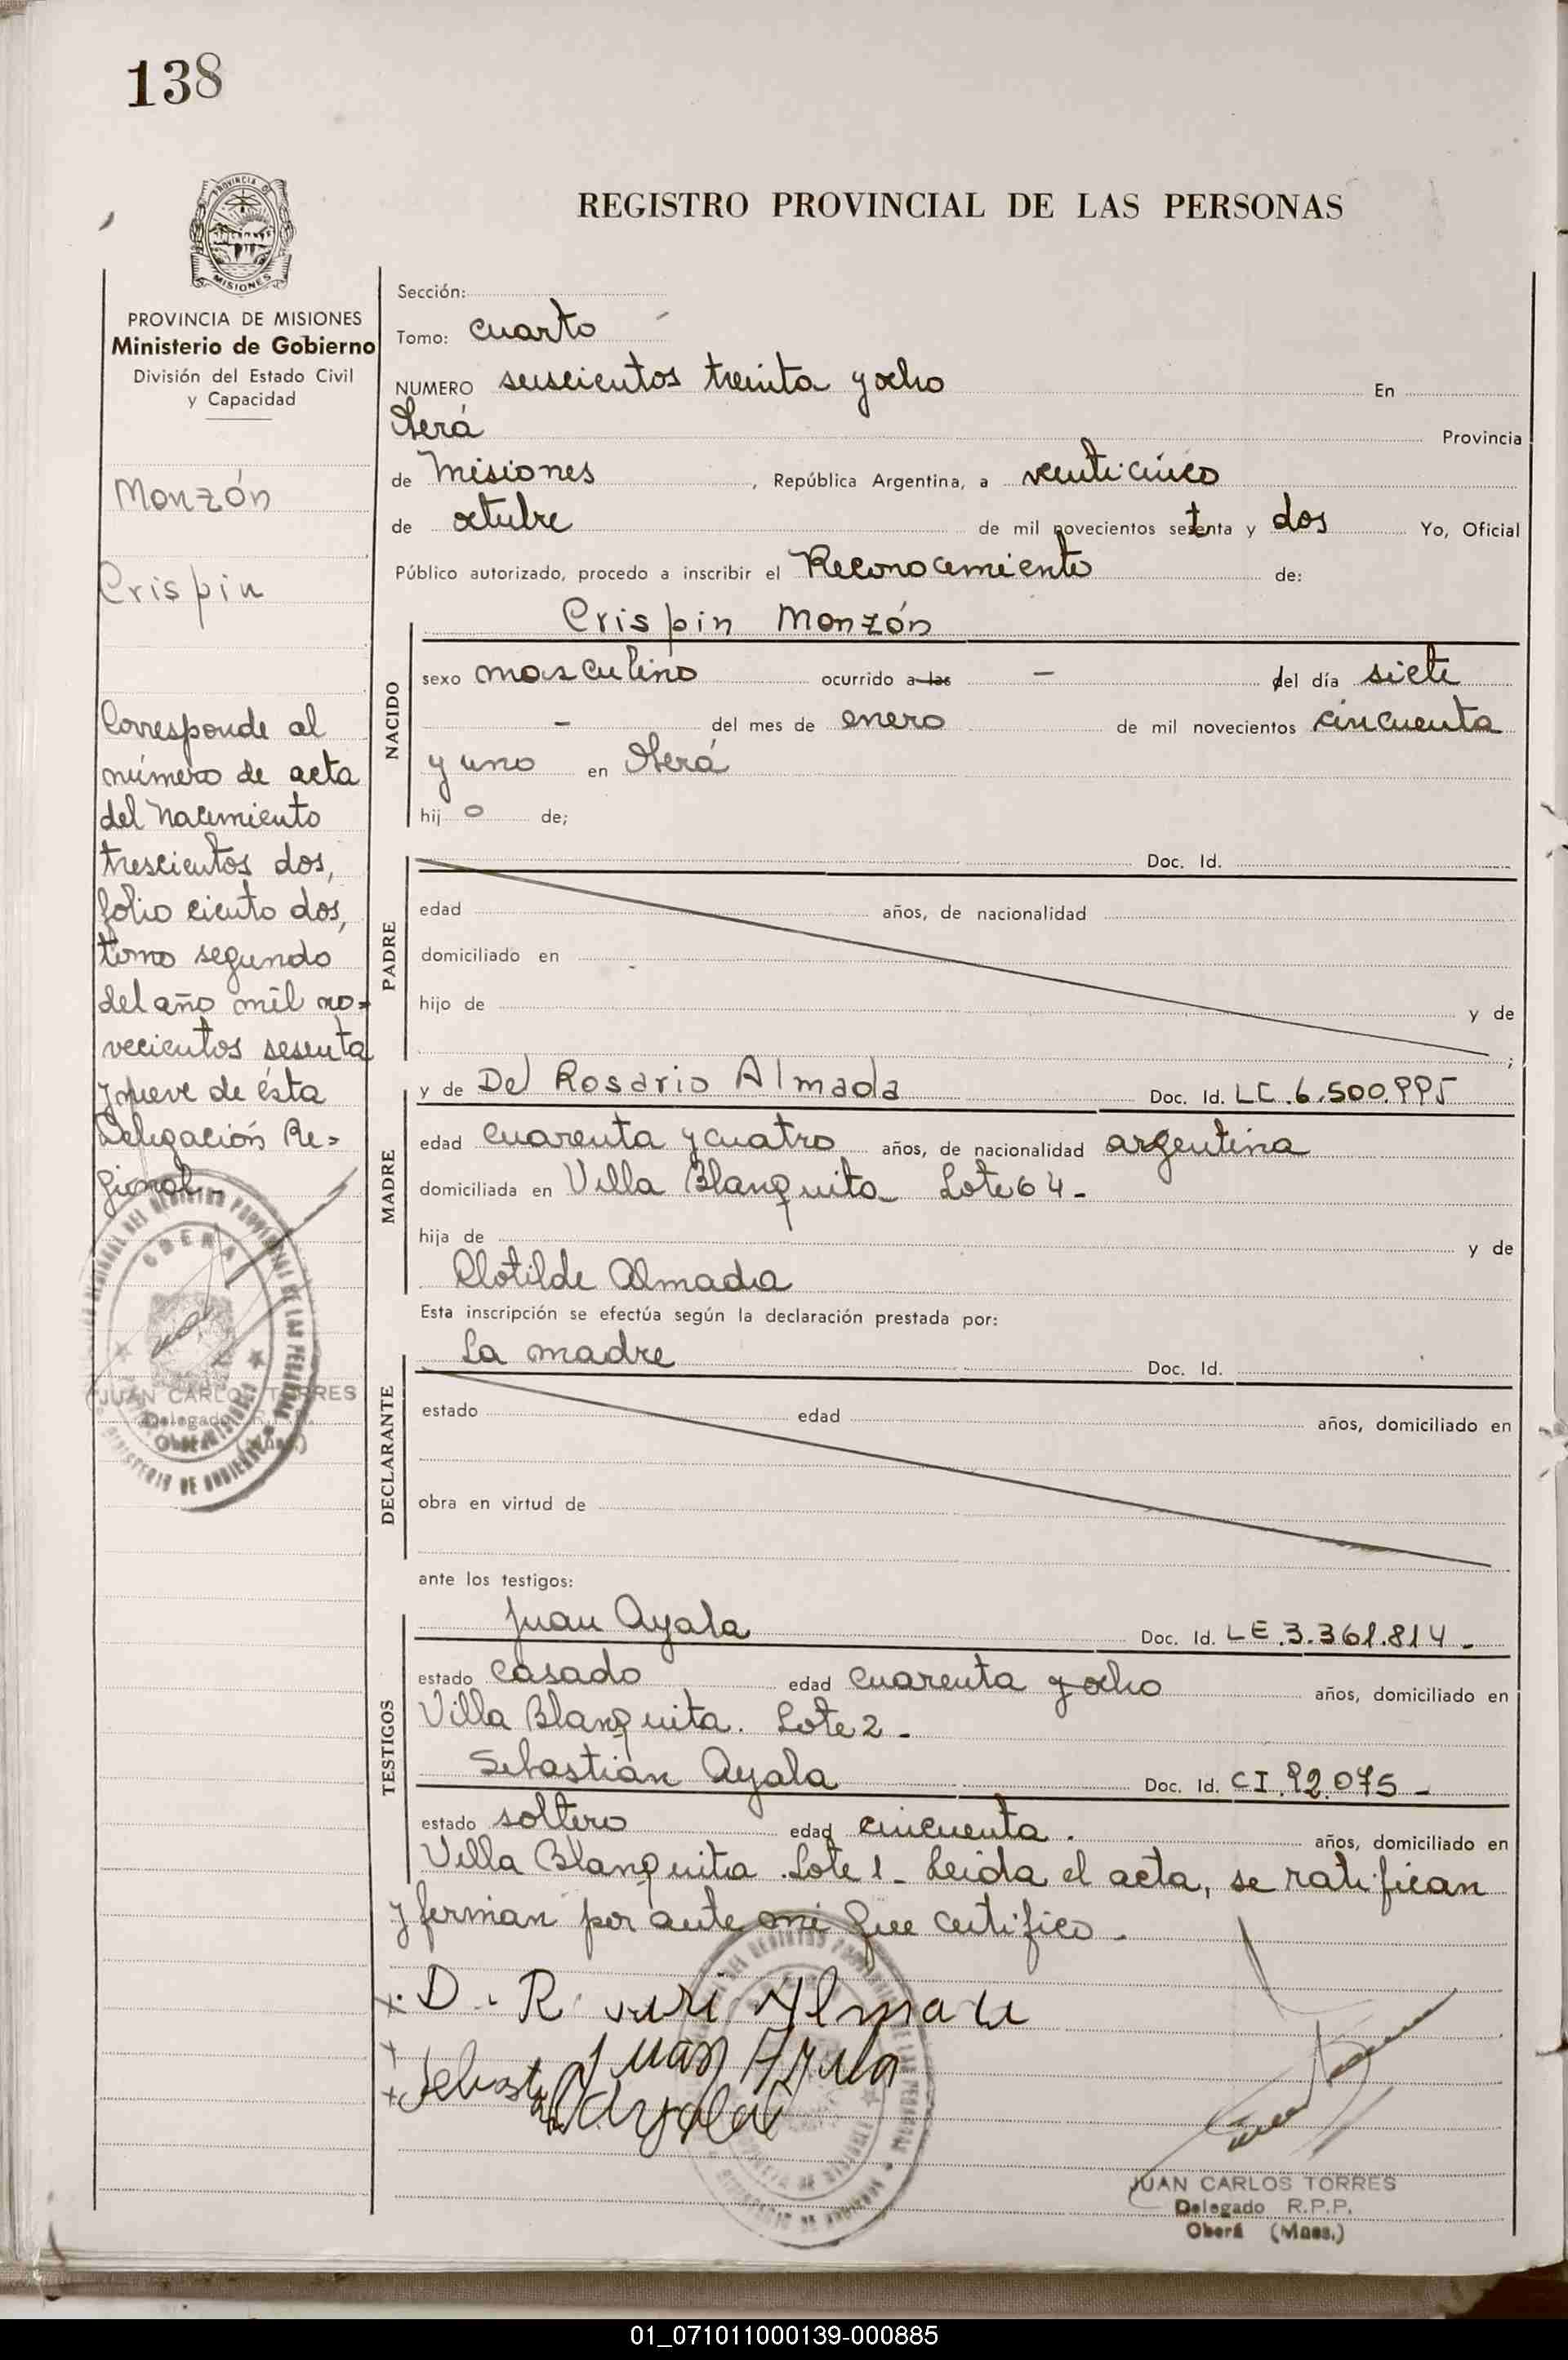 138
PROVINCIA DE
MISIONES
REGISTRO PROVINCIAL DE LAS PERSONAS
PROVINCIA DE MISIONES
Ministerio de Gobierno
División del Estado Civil
y Capacidad
Monzón
Crispin
Corresponde al
número de acta
del Nacimiento
trescientos dos,
folio ciento dos,
tomo segundo
del año mil no=
vecientos sesenta
y nueve de ésta
Delegación Re=
gional.-
JUAN CARLOS TORRES
Delegado R.P.P.
Oberá (Mnes.)
Sección:
Tomo: cuarto
NUMERO seiscientos treinta y ocho En
Oberá Provincia
de Misiones, República Argentina, a veinticinco
de octubre de mil novecientos setenta y dos Yo, Oficial
Público autorizado, procedo a inscribir el Reconocimiento de:
Crispin Monzón
NACIDO
sexo masculino ocurrido a las - del día siete
- del mes de enero de mil novecientos cincuenta
y uno en Oberá
hij o de;
PADRE
Doc. Id.
edad años, de nacionalidad
domiciliado en
hijo de y de
;
MADRE
y de Del Rosario Almada Doc. Id. LC.6.500.995
edad cuarenta y cuatro años, de nacionalidad argentina
domiciliada en Villa Blanquita Lote 64-
hija de y de
Clotilde Almada
Esta inscripción se efectúa según la declaración prestada por:
DECLARANTE
La madre Doc. Id.
estado edad años, domiciliado en
obra en virtud de
ante los testigos:
TESTIGOS
Juan Ayala Doc. Id. LE.3.361.814-
estado casado edad cuarenta y ocho años, domiciliado en
Villa Blanquita. Lote 2-
Sebastián Ayala Doc. Id. CI.92.075-
estado soltero edad cincuenta. años, domiciliado en
Villa Blanquita. Lote 1- Leida el acta, se ratifican
y firman por ante mi que certifico-
Juan Ayala
JUAN CARLOS TORRES
Delegado R.P.P.
Oberá (Mnes.)
01_071011000139-000885